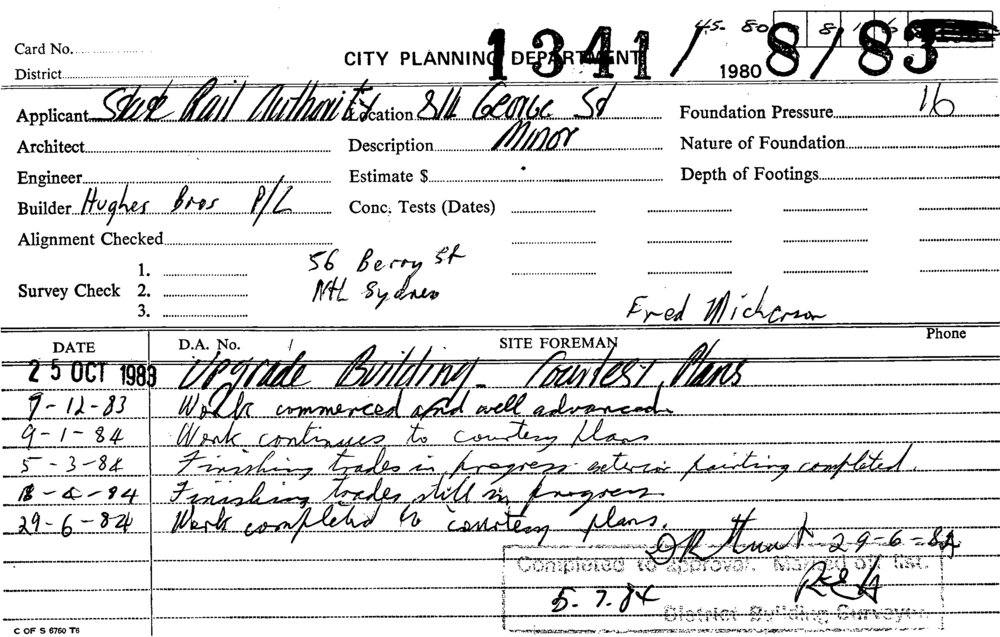 45. 80 8 1 6
Card No.
CITY PLANNING DEPARTMENT 1341/ 1980 8/83
District
Applicant State Rail Authority Location 814 George St Foundation Pressure 16
Architect Description Minor Nature of Foundation
Engineer Estimate $ Depth of Footings
Builder Hughes Bros P/L Conc. Tests (Dates)
Alignment Checked
56 Berry St
Survey Check 1. 2. 3.
Nth Sydney
Fred Mickerson
DATE D.A. No. SITE FOREMAN Phone
25 OCT 1983 Upgrade Building - Courtesy Plans
9-12-83 Work commenced and well advanced
9-1-84 Work continues to courtesy plans
5-3-84 Finishing trades in progress exterior painting completed.
-4-84 Finishing trades still in progress
29-6-84 Work completed to courtesy plans.
29-6-84
Completed to approval. Marked off list.
5.7.84
District Building Surveyor
C OF S 6760 T6